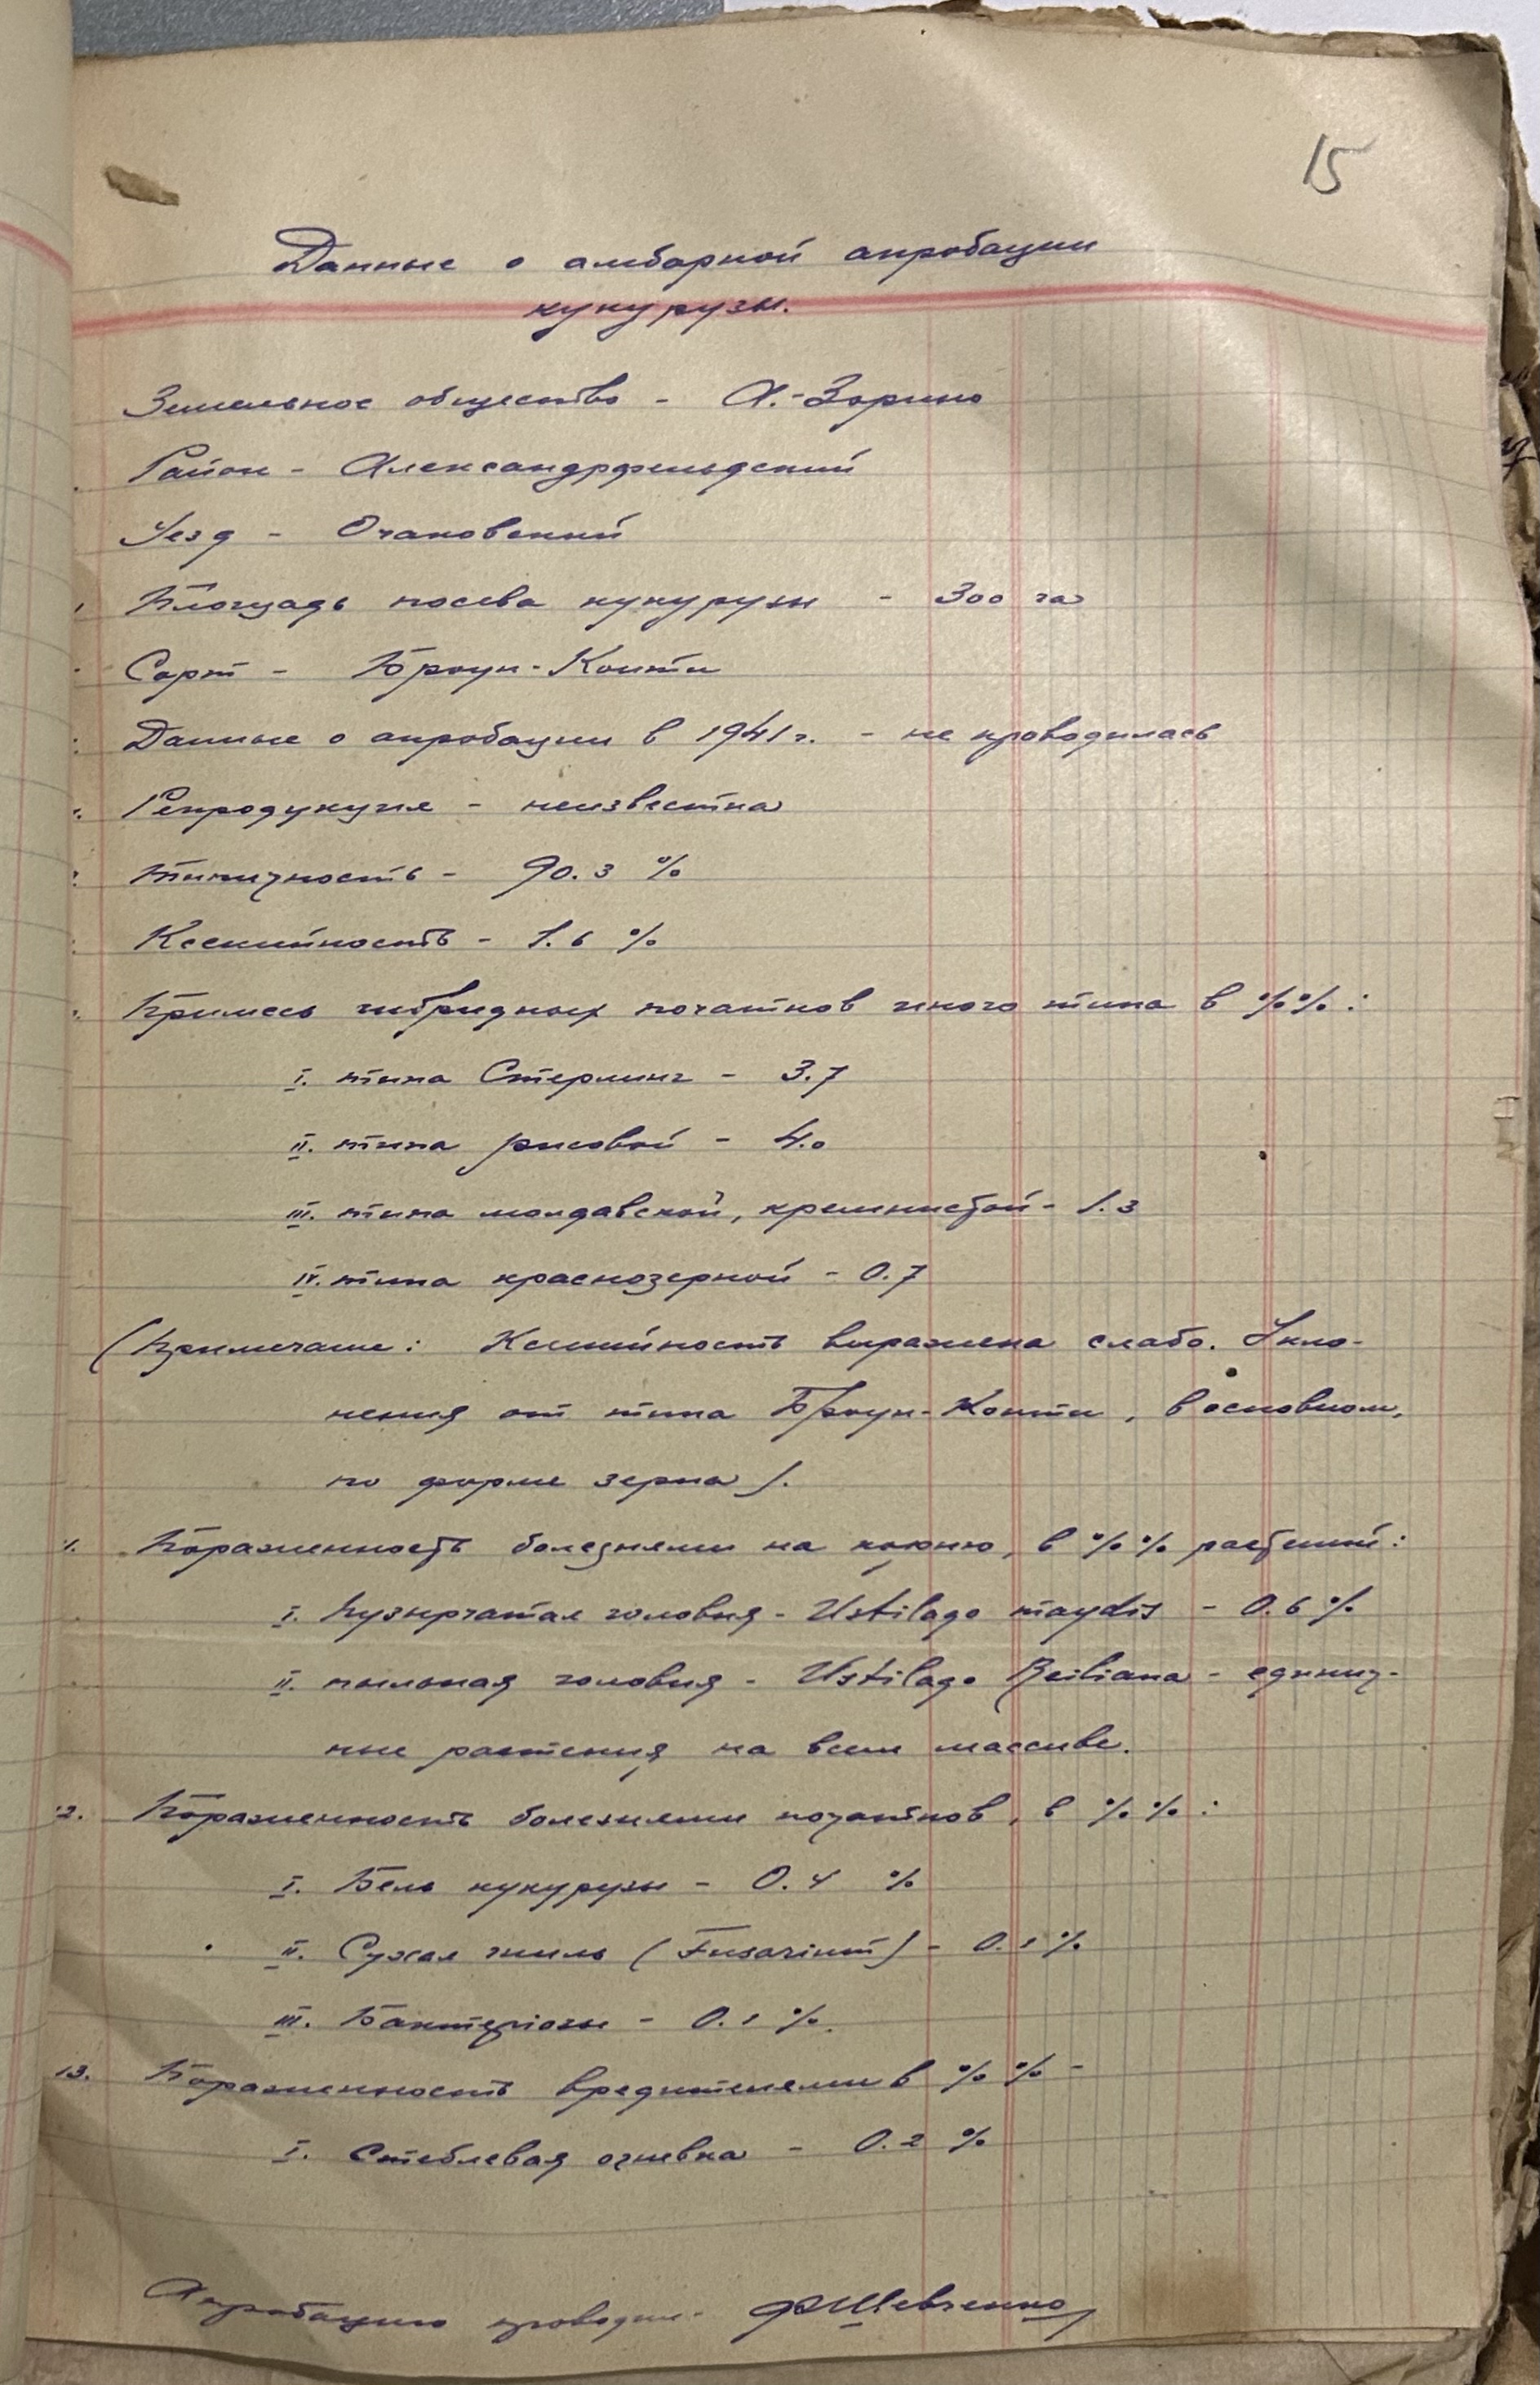 15
Данные о амбарной апробации
кукурузы.
Земельное общество - А.-Зорино
Район - Александрфельдский
Уезд - Очаковский
Площадь посева кукурузы - 300 га
Сорт - Броун-Конти
Данные о апробации в 1941 г. - не проводилась
Репродукция - неизвестна
Типичность - 90.3 %
Ксенийность - 1.6 %
Примесь гибридных початков иного типа в %%:
I. типа Стерлинг - 3.7
II. типа рисовой - 4.0
III. типа молдавской, кремнистой - 1.3
IV. типа краснозерной - 0.7
(Примечание: Ксенийность выражена слабо. Укло-
нения от типа Броун-Конти, в основном,
по форме зерна).
Пораженность болезнями на корню, в %% растений:
I. Пузырчатая головня - Ustilago maydis - 0.6 %
II. пыльная головня - Ustilago Reiliana - единич-
ные растения на всем массиве.
12. Пораженность болезнями початков, в %%:
I. Бель кукурузы - 0.4 %
II. Сухая гниль (Fusarium) - 0.1 %
III. Бактериозы - 0.1 %.
13. Пораженность вредителями в %% -
I. Стеблевая огневка - 0.2 %
Апробацию проводил - Шевченко